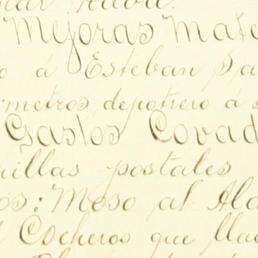 Mejoras Mate
o á Esteban Sa
metros de potrero á s
Gastos Covad
illas postales
os: Meso al Ala
Cocheros que lla